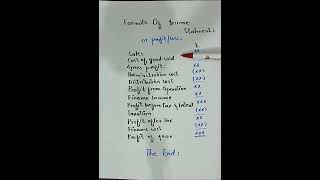 Formate Of Income
Statement:
or profit/loss:
Sales xx
Cost of good sold
Gross profit: xx
Administration cost (xx)
Distribution cost (xx)
Profit from operation xx
Finance Income xx
Profit before Tax & Interest xx
Taxation (xx)
Profit after Tax xx
Finance cost (xx)
Profit of year xxx
The End: